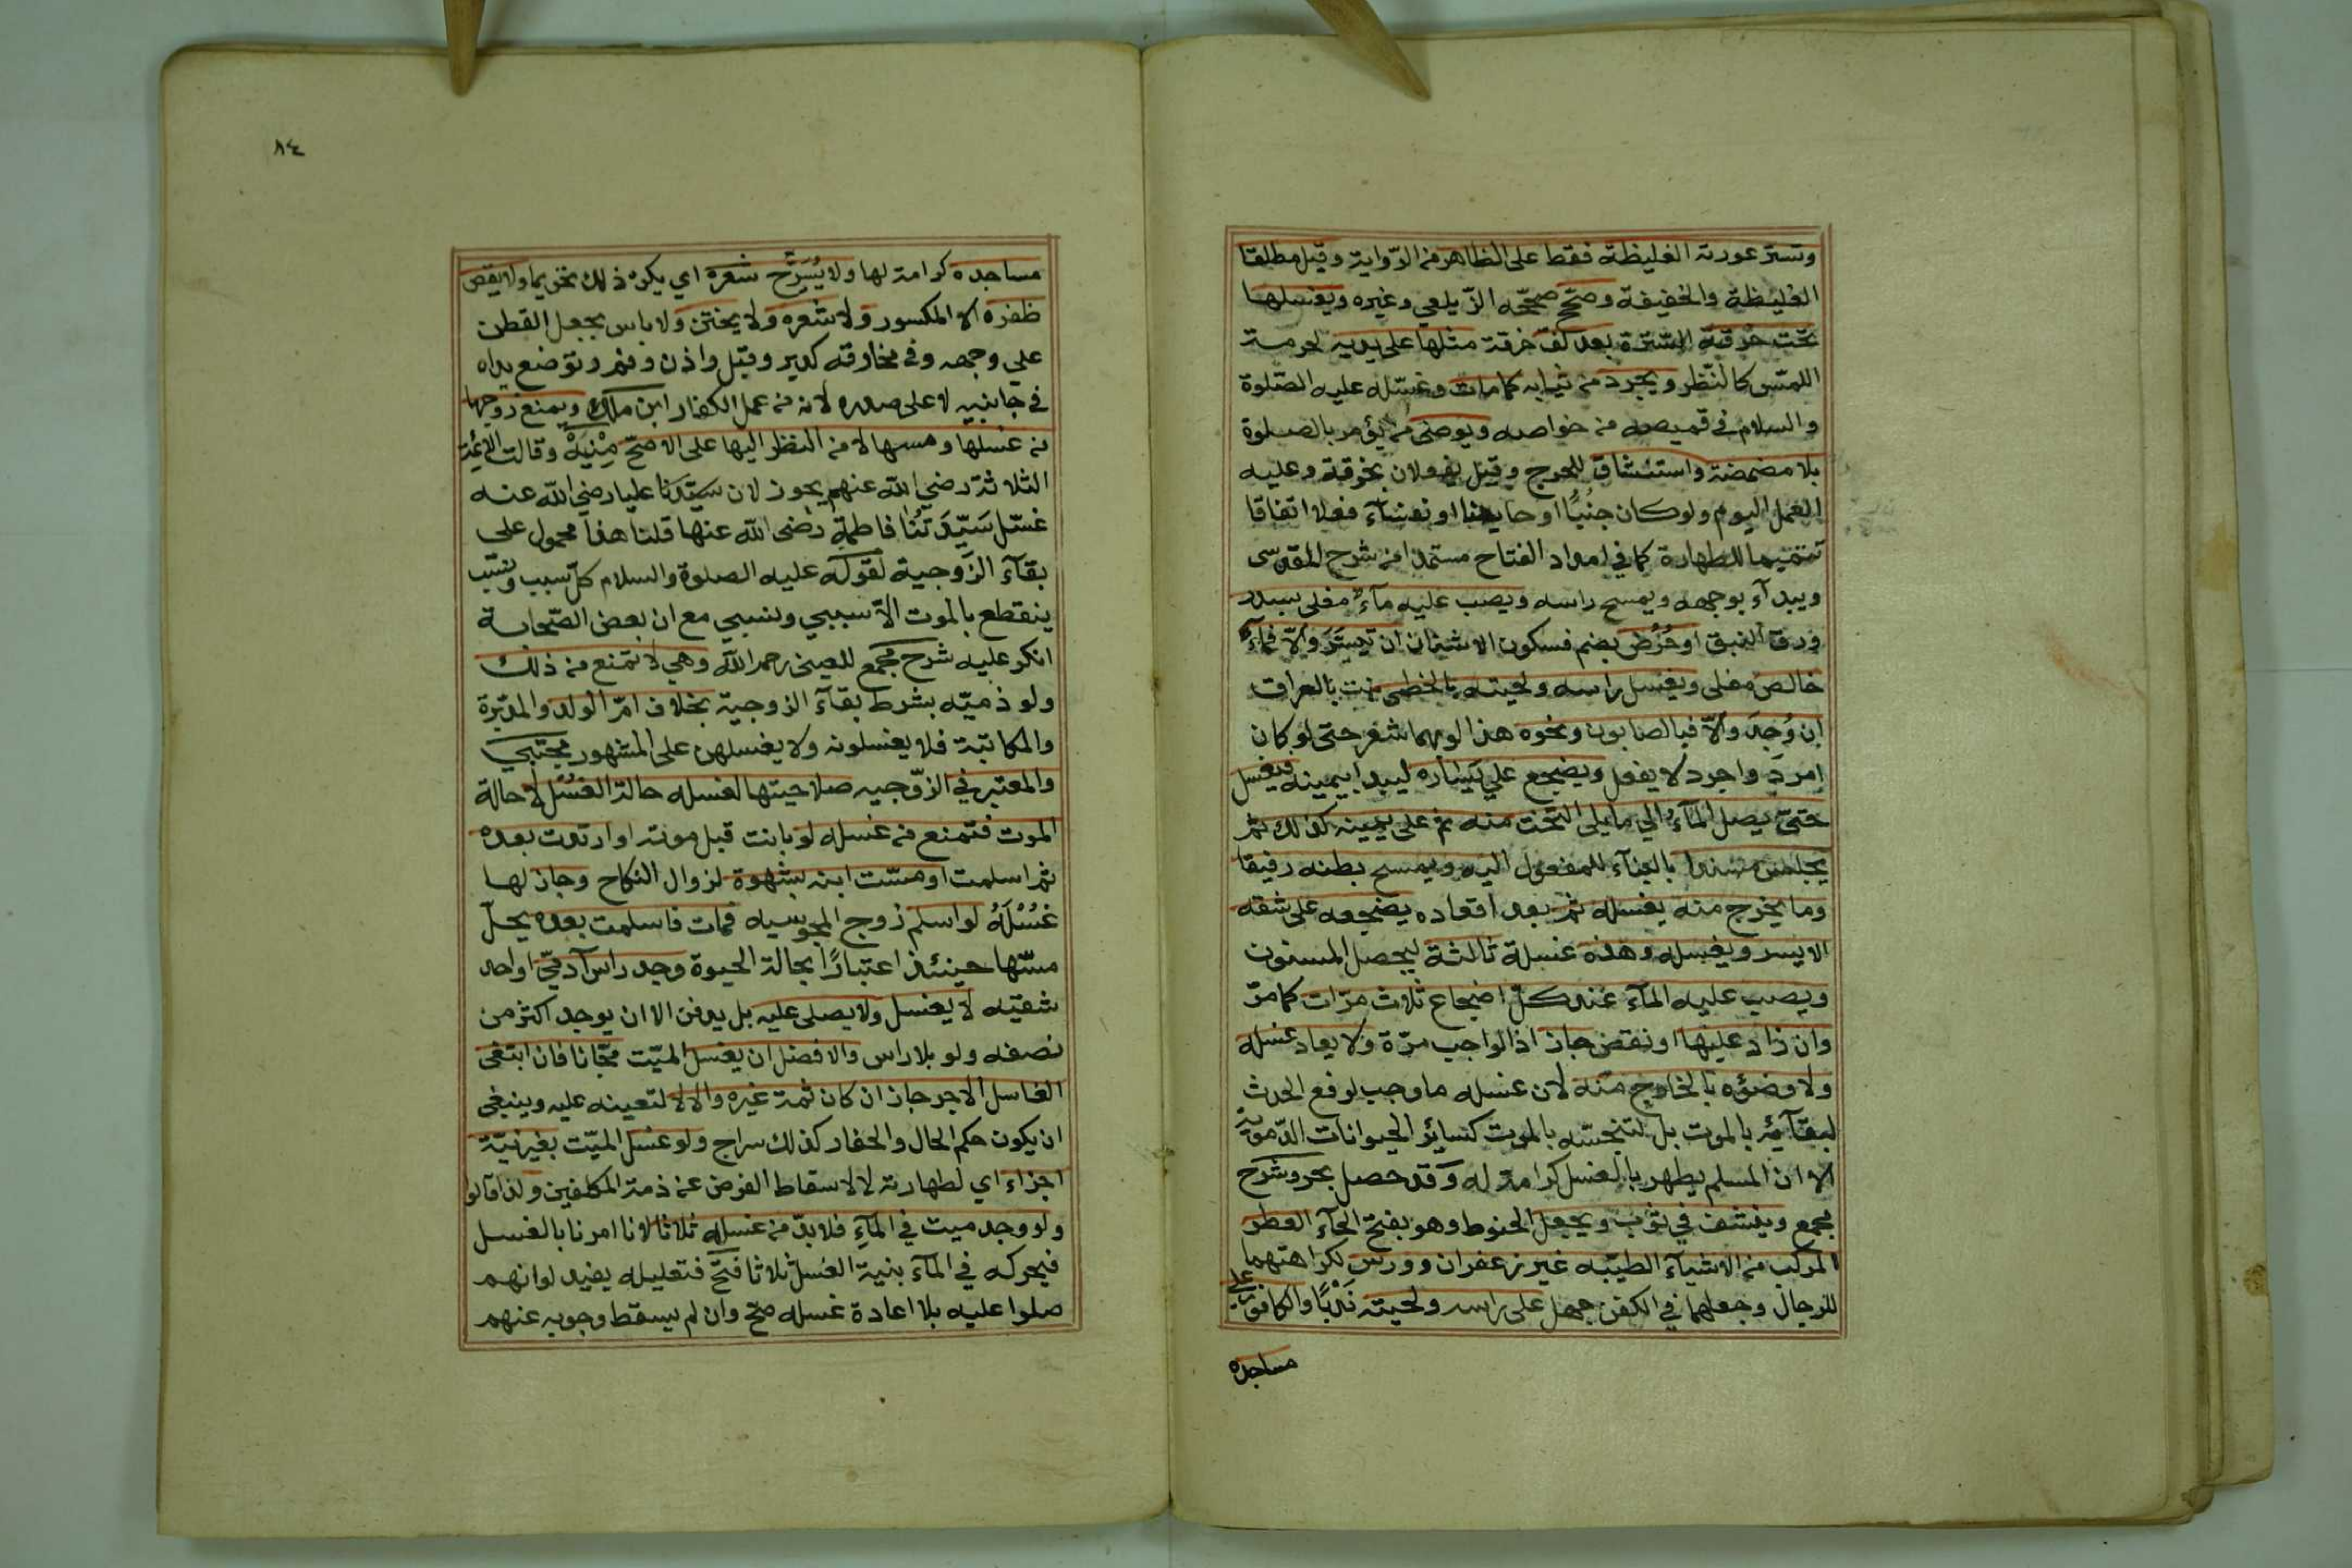 وتستر عورته الغليظة فقط على الظاهر من الرّواية وقيل مطلقا
الغليظة والخفيفة وصحّ صححّه الزّيلعي وغيره ويغسلها
تحت خرقة السّترة بعد لفّ خرقة مثلها على يديه لحرمة
اللمسّ كالنّظر ويجرد من ثيابه كما مات وغسّله عليه الصّلوة
والسلام في قميصه من خواصه ويوضى من يؤمر بالصلوة
بلا مضمضة واستنشاق للحرج وقيل يفعلان بخرقة وعليه
العمل اليوم ولو كان جُنبًا او حايضا او نفسآء فعلا اتفاقا
تتميما للطهارة كما في امداد الفتاح مستمدا من شرح المقدسى
ويبدآء بوجهه ويمسح راسه ويصب عليه مآء مغلى بسدر
ورق النبق او حُرُض بضم فسكون الاشنان ان تيسّر والّا فمآء
خالص مغلى ويغسل راسه ولحيته بالخطمى نبت بالعراق
ان وُجِدَ والّا فبالصابون ونحوه هذا لو بهما شعر حتى لو كان
امردَ واجرد لا يفعل ويضجع علي يساره ليبدا بيمينه فيغسل
حتىّ يصل المآء الي ما يلى التخت منه ثم على يمينه كذلك ثم
يجلس مسندا بالبنآء للمفعول اليه ويمسح بطنه رفيقا
وما يخرج منه يغسله ثم بعد اقعاده يضجعه على شقه
الايسر ويغسله وهذه غسلة ثالثة ليحصل المسنون
ويصب عليه المآء عند كلّ اضجاع ثلاث مرّات كما مرّ
وان زاد عليها او نقص جاز اذ الواجب مرّة ولا يعاد غسله
ولا وضؤه بالخارج منه لان غسله ما وجب لرفع الحدث
لبقآئه بالموت بل لتنجسّه بالموت كسائر الحيوانات الدّموية
الا ان المسلم يطهر بالغسل كرامة له وقد حصل بحر وشرح
مجمع وينشف في ثوب ويجعل الحنوط وهو بفتح الحآء العطر
المركب من الاشيآء الطيّبه غير زعفران وورس لكراهتهما
للرجال وجعلهما في الكفن جهل على راسه ولحيته نَدبًا والكافور على
مساجده
٨٤
مساجده كرامة لها ولا يُسَرَّح شعره اي يكره ذلك تحريما ولا يقص
ظفره الا المكسور ولا شعره ولا يختن ولا باس بجعل القطن
علي وجهه وفي مخارقه كدبر وقبل واذن وفم وتوضع يداه
في جانبيه لا على صدره لانه من عمل الكفار ابن ملك ويمنع زوجها
من غسلها ومسها لا من النظر اليها على الاصحّ مِنْيَةْ وقالت الائمة
الثلاثة رضي الله عنهم يجوز لان سيّدنا عليا رضي الله عنه
غسّل سَيّدَتَنُا فاطمة رضى الله عنها قلنا هذا محمول على
بقآء الزّوجية لقوله عليه الصلوة والسلام كلّ سبب ونسب
ينقطع بالموت الاّ سببي ونسبي مع ان بعض الصّحابة
انكر عليه شرح مجمع للعينى رحمه الله وهي لا تمنع من ذلك
ولو ذميّه بشرط بقآء الزوجية بخلاف امّ الولد والمدبّرة
والمكاتبة فلا يغسلونه ولا يغسلهن على المشهور مجتبي
والمعتبر في الزّوجيه صلاحيتها لغسله حالة الغُسْل لا حالة
الموت فتمنع من غسله لو بانت قبل موته او ارتدت بعده
ثم اسلمت او مسّت ابنه بشهوة لزوال النكاح وجاز لها
غَسْلَهُ لو اسلم زوج المجوسيه فمات فاسلمت بعده يحلّ
مسّها حينئذ اعتبارًا بحالة الحيوة وجد راس آدميّ او احد
شقيّه لا يغسل ولا يصلى عليه بل يدفن الا ان يوجد اكثر من
نصفه ولو بلا راس والافضل ان يغسل الميّت مجّانا فان ابتغى
الغاسل الاجر جاز ان كان ثمة غيره والا لا لتعينه عليه وينبغى
ان يكون حكم الحال والحفار كذلك سراج ولو غسّل الميّت بغير نيّة
اجزاء اي لطهارته لا لاسقاط الفرض عن ذمة المكلفين ولذا قالوا
ولو وجد ميت في المآءِ فلا بدّ من غسله ثلاثا لانا امرنا بالغسل
فيحركه في المآء بنية الغسل ثلاثا فتح فتعليله يفيد لو انهم
صلوا عليه بلا اعادة غسله صحّ وان لم يسقط وجوبه عنهم